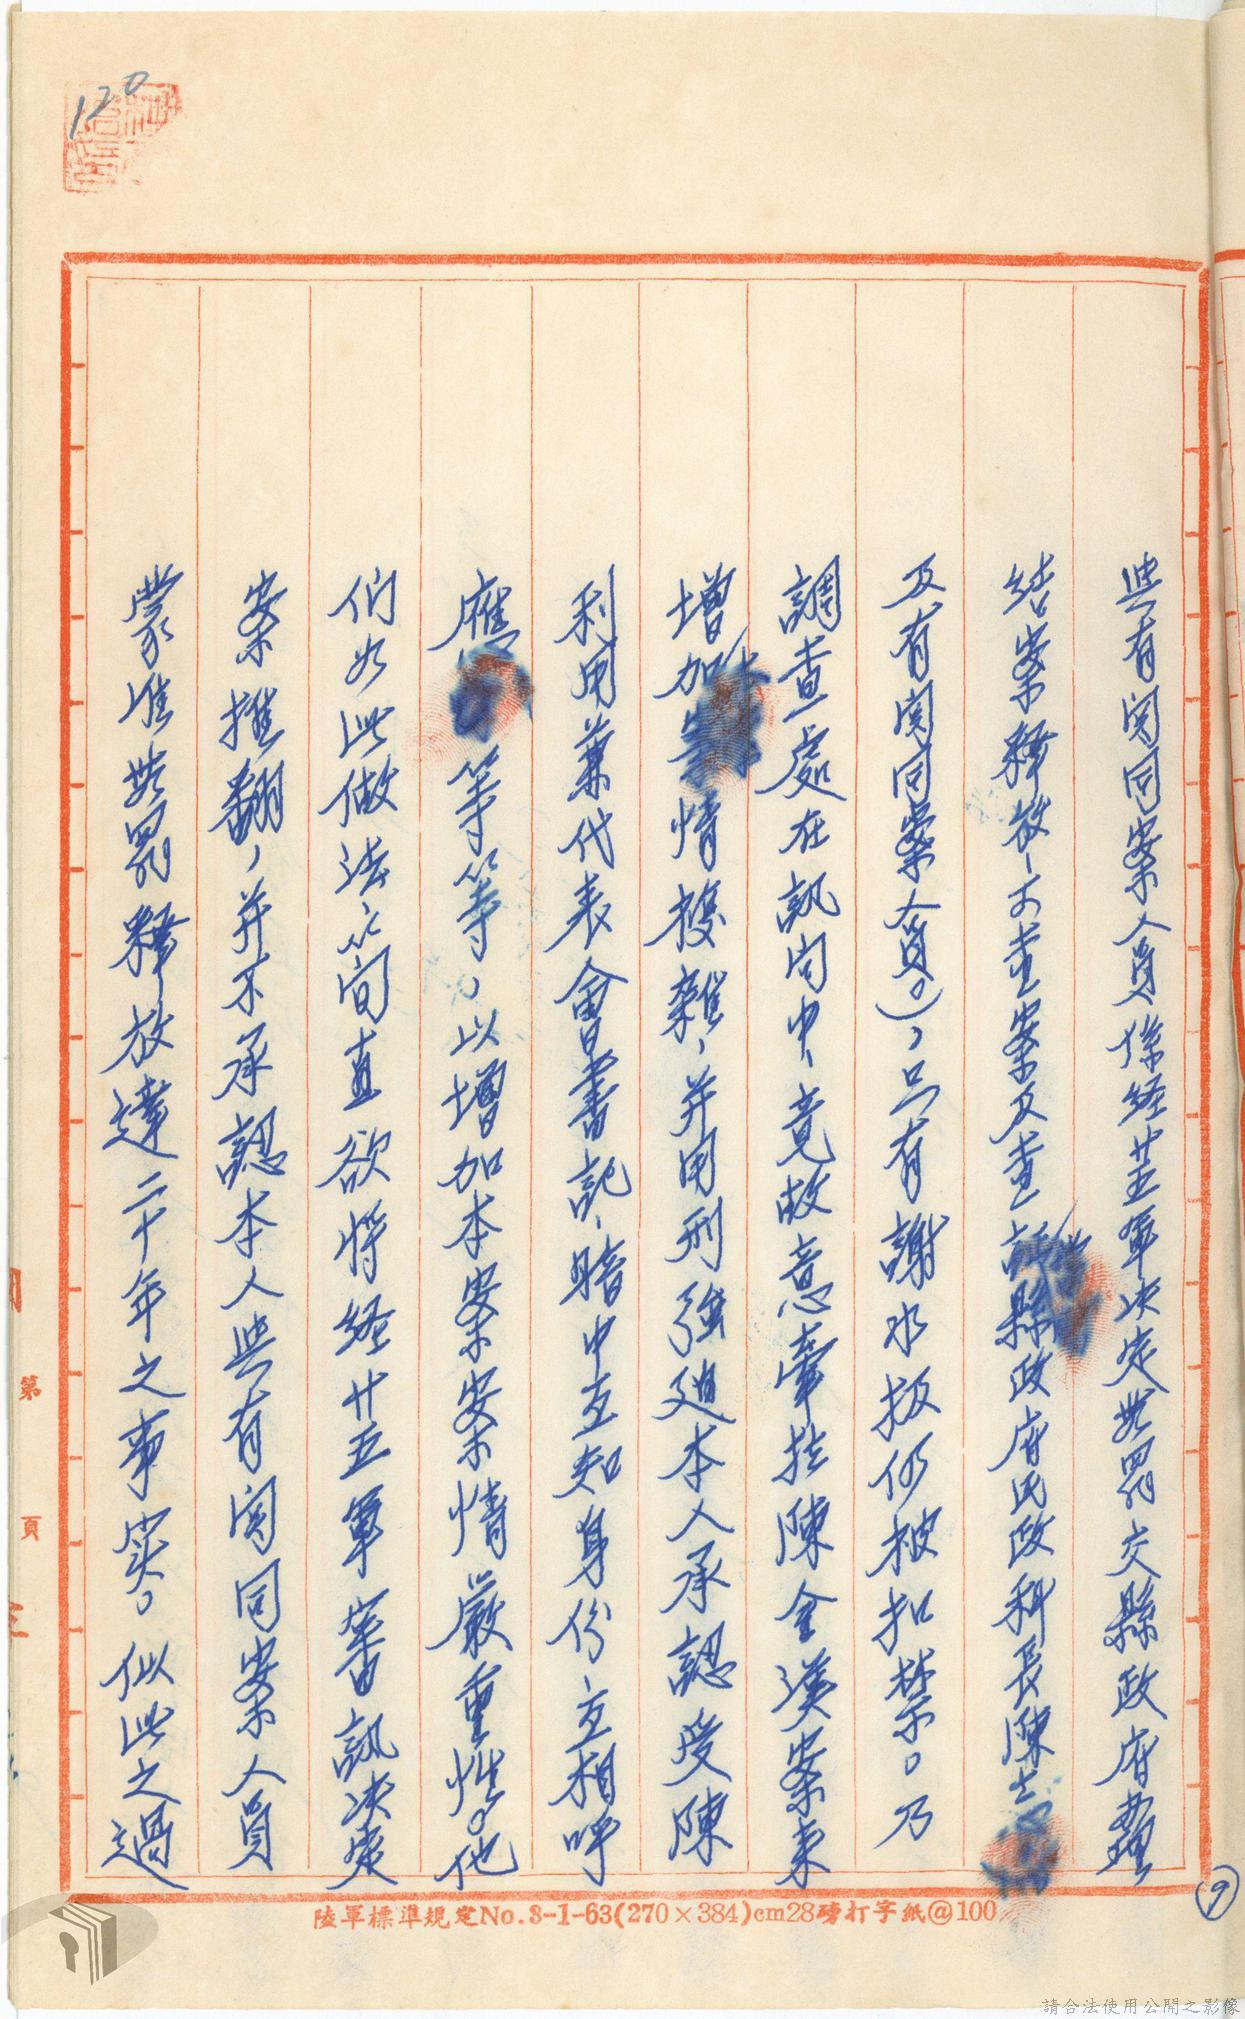 120
與有関同案人員係経廿軍决定無罪交縣政府整
結案釋放、可查案及查縣政府民政科長陳志
及有関同案人員。)，只有謝水扳仍被扣禁。乃
調查處在訊問中、竟故意牽扯陳金漢案來
增加案情複雜、并用刑強廹本人承認受陳
利用兼代表會書記、暗中互知身份、互相呼
應等等，以增加本案案情嚴重性。他
们如此做法、簡直欲将経廿五軍審訊决定
案推翻，并不承認本人與有関同案人員
蒙准無罪釋放達二十年之事实。似此之過
第 頁
陸軍標準規定No.3-1-63(270×384)cm28磅打字紙@100
9
請合法使用公開之影像